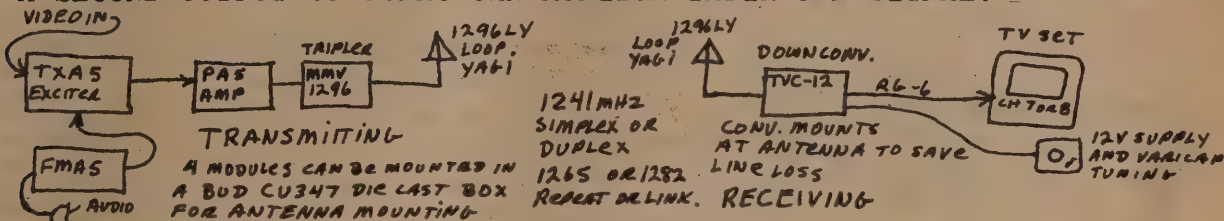 VIDEO IN
TXA5
EXCITER
FMA5
AUDIO
PA5
AMP
TRIPLER
MMV
1296
1296LY
LOOP.
YAGI
TRANSMITTING
4 MODULES CAN BE MOUNTED IN
A BUD CU347 DIE CAST BOX
FOR ANTENNA MOUNTING
1241 MHZ
SIMPLEX OR
DUPLEX
1265 OR 1282
REPEAT OR LINK.
1296LY
LOOP
YAGI
DOWNCONV.
TVC-12
RG-6
CONV. MOUNTS
AT ANTENNA TO SAVE
LINE LOSS
RECEIVING
TV SET
CH 7 OR 8
12V SUPPLY
AND VARICAP
TUNING